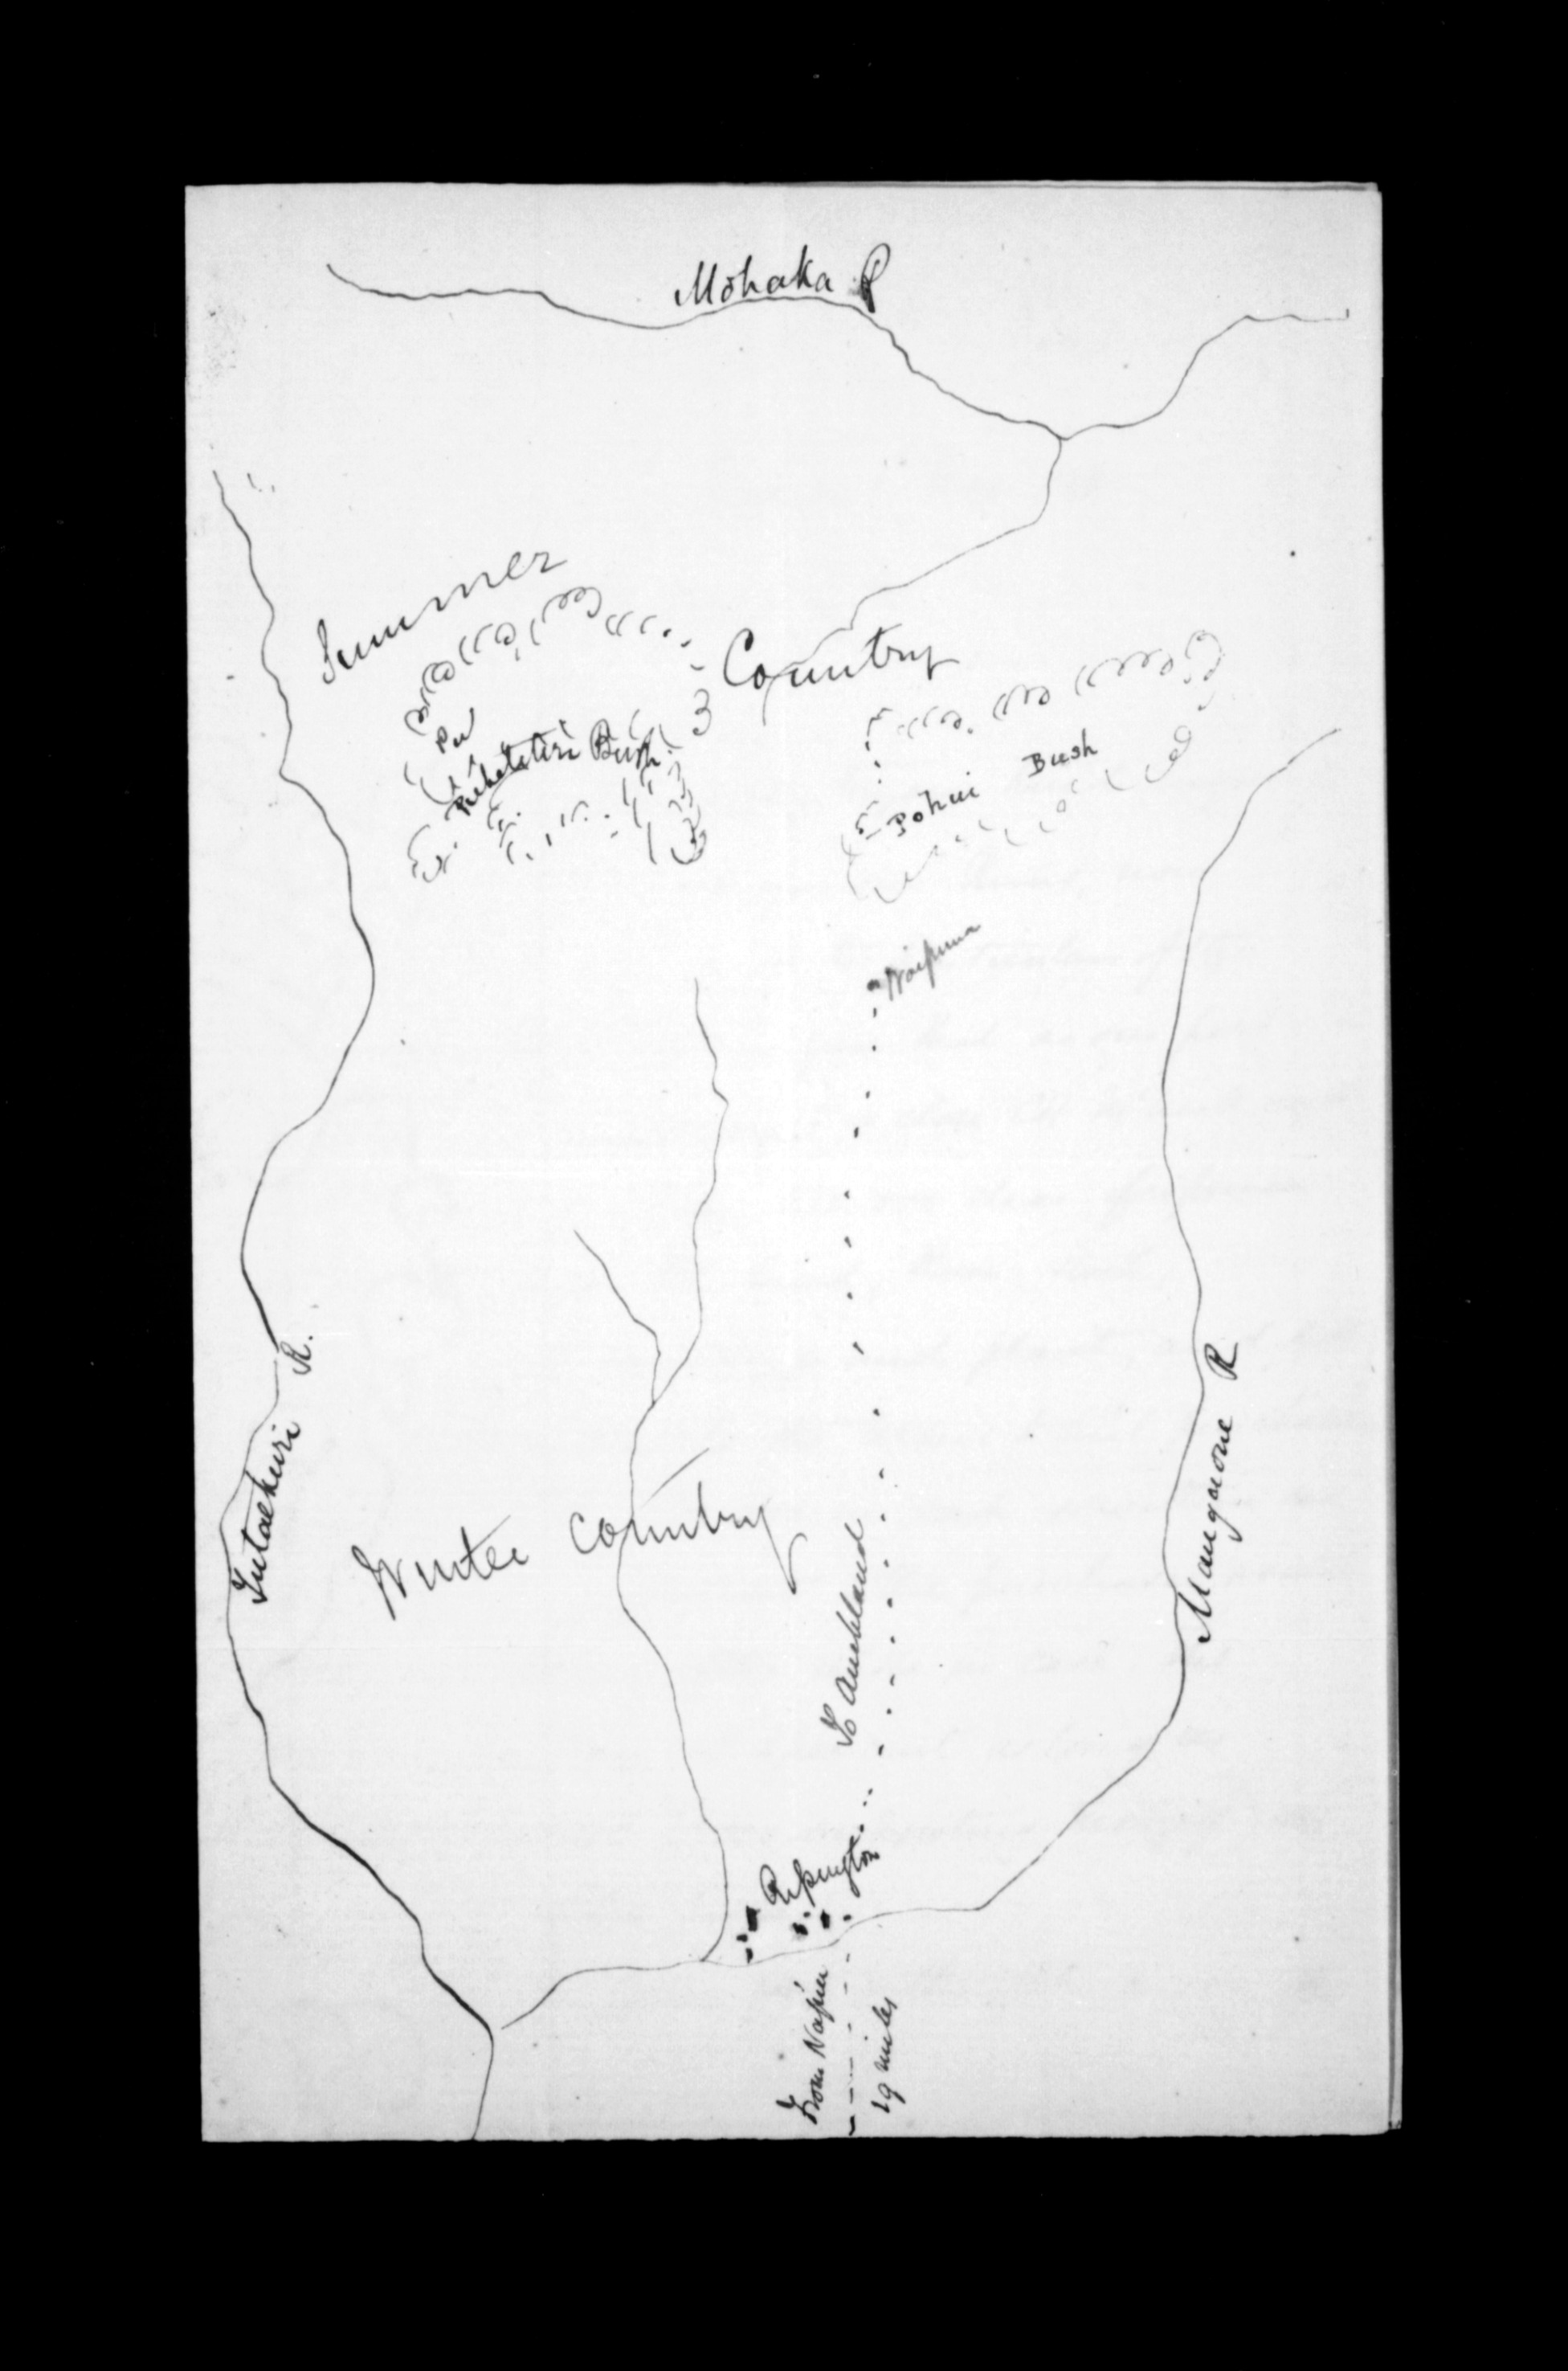 Mohaka R
Summer Country
Pu
Pukatitiri Bush
Pohui Bush
Waipuna
Tutaekuri R.
Mangaone R
Winter Country
To Auckland
Rissington
From Napier
19 miles